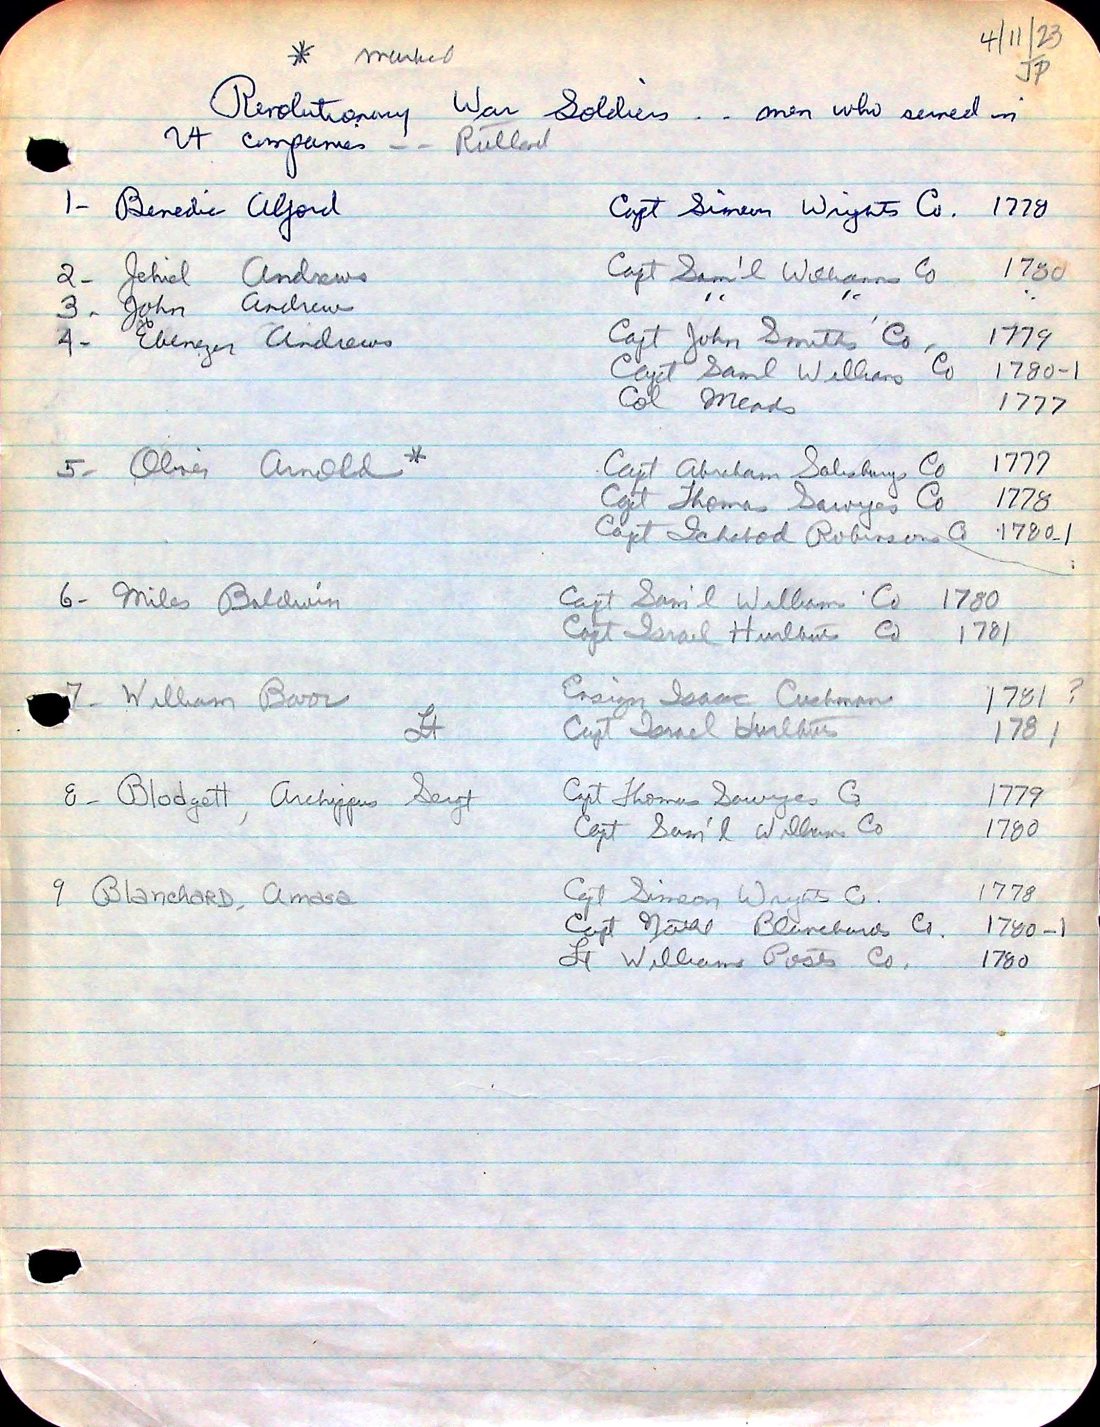 4/11/23
JP
* marked
Revolutionary War Soldiers .. men who served in
Vt companies -- Rutland
1- Benedic Alford Capt Simeon Wrights Co. 1778
2- Jehiel Andrews Capt Sam'l Williams Co 1780
3. John Andrews " " "
4- Ebenezer Andrews Capt John Smiths' Co, 1779
Capt Saml Williams Co 1780-1
Col Meads 1777
5- Oliver Arnold * Capt Abraham Salisburys Co 1777
Capt Thomas Sawyes Co 1778
Capt Ichabod Robinsons Co 1780-1
6- Miles Baldwin Capt Sam'l Williams Co 1780
Capt Israel Hurlbuts Co 1781
7- William Ensign Isaac Cushman 1781 ?
Lt Capt Israel Hurlbuts 1781
8- Blodgett, Archippus Sergt Capt Thomas Sawyes Co 1779
Capt Sam'l Williams Co 1780
9 Blanchard, Amasa Capt Simeon Wrights Co. 1778
Capt Nathl Blanchards Co. 1780-1
Lt Williams Posts Co. 1780